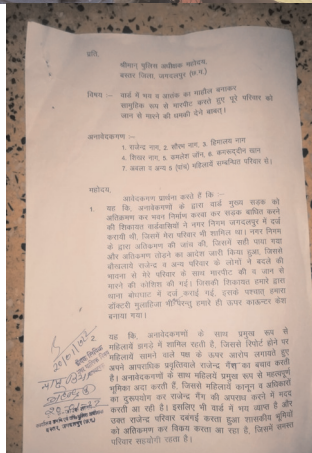 प्रति,
श्रीमान् पुलिस अधीक्षक महोदय,
बस्तर जिला, जगदलपुर (छ.ग.)
विषय :- वार्ड में भय व आतंक का माहौल बनाकर
सामुहिक रूप से मारपीट करते हुए पूरे परिवार को
जान से मारने की धमकी देने बाबत्।
अनावेदकगण :-
1. राजेन्द्र नाग, 2. सौरभ नाग, 3. हिमालय नाग
4. शिखर नाग, 5. कमलेश जॉन, 6. कमरूद्दीन खान
7. अन्य 5 (पांच) महिलायें सम्बन्धित परिवार से।
महोदय,
आवेदकगण प्रार्थना करते हैं कि :-
1. यह कि, अनावेदकगणों के द्वारा वार्ड मुख्य सड़क को
अतिक्रमण कर भवन निर्माण करवा कर सड़क बाधित करने
की शिकायत वार्डवासियों ने नगर निगम जगदलपुर में दायर
करायी थी, जिसमें मेरा परिवार भी शामिल था। नगर निगम
के द्वारा अतिक्रमण की जांच की, जिसमें सही पाया गया
और अतिक्रमण तोड़ने का आदेश जारी किया हुआ, जिससे
बौखलाये राजेन्द्र व अन्य परिवार के लोगों ने बदले की
भावना से मेरे परिवार के साथ मारपीट की व जान से
मारने की कोशिश की गई। जिसकी शिकायत हमारे द्वारा
थाना बोधघाट में दर्ज कराई गई, इसके पश्चात् हमारा
डॉक्टरी मुलाहिजा भी परन्तु हमारे ही ऊपर काउन्टर केश
बनाया गया।
यह कि, अनावेदकगणों के साथ प्रमुख रूप से
महिलायें झगड़े में शामिल रहती है, जिससे रिपोर्ट होने पर
महिलायें सामने वाले पक्ष के ऊपर आरोप लगाते हुए
अपने आपराधिक प्रवृत्तिवाले राजेन्द्र गैंग का बचाव करती
है। अनावेदकगणों के साथ महिलायें प्रमुख रूप से महत्वपूर्ण
भूमिका अदा करती हैं, जिससे महिलायें कानून व अधिकारों
का दुरूपयोग कर राजेन्द्र गैंग की अपराध करने में मदद
करती आ रही है। इसलिए भी वार्ड में भय व्याप्त है और
उक्त राजेन्द्र परिवार दबंगई करता हुआ शासकीय भूमियों
को अतिक्रमण कर विक्रय करता आ रहा है, जिसमें समस्त
परिवार सहयोगी रहता है।